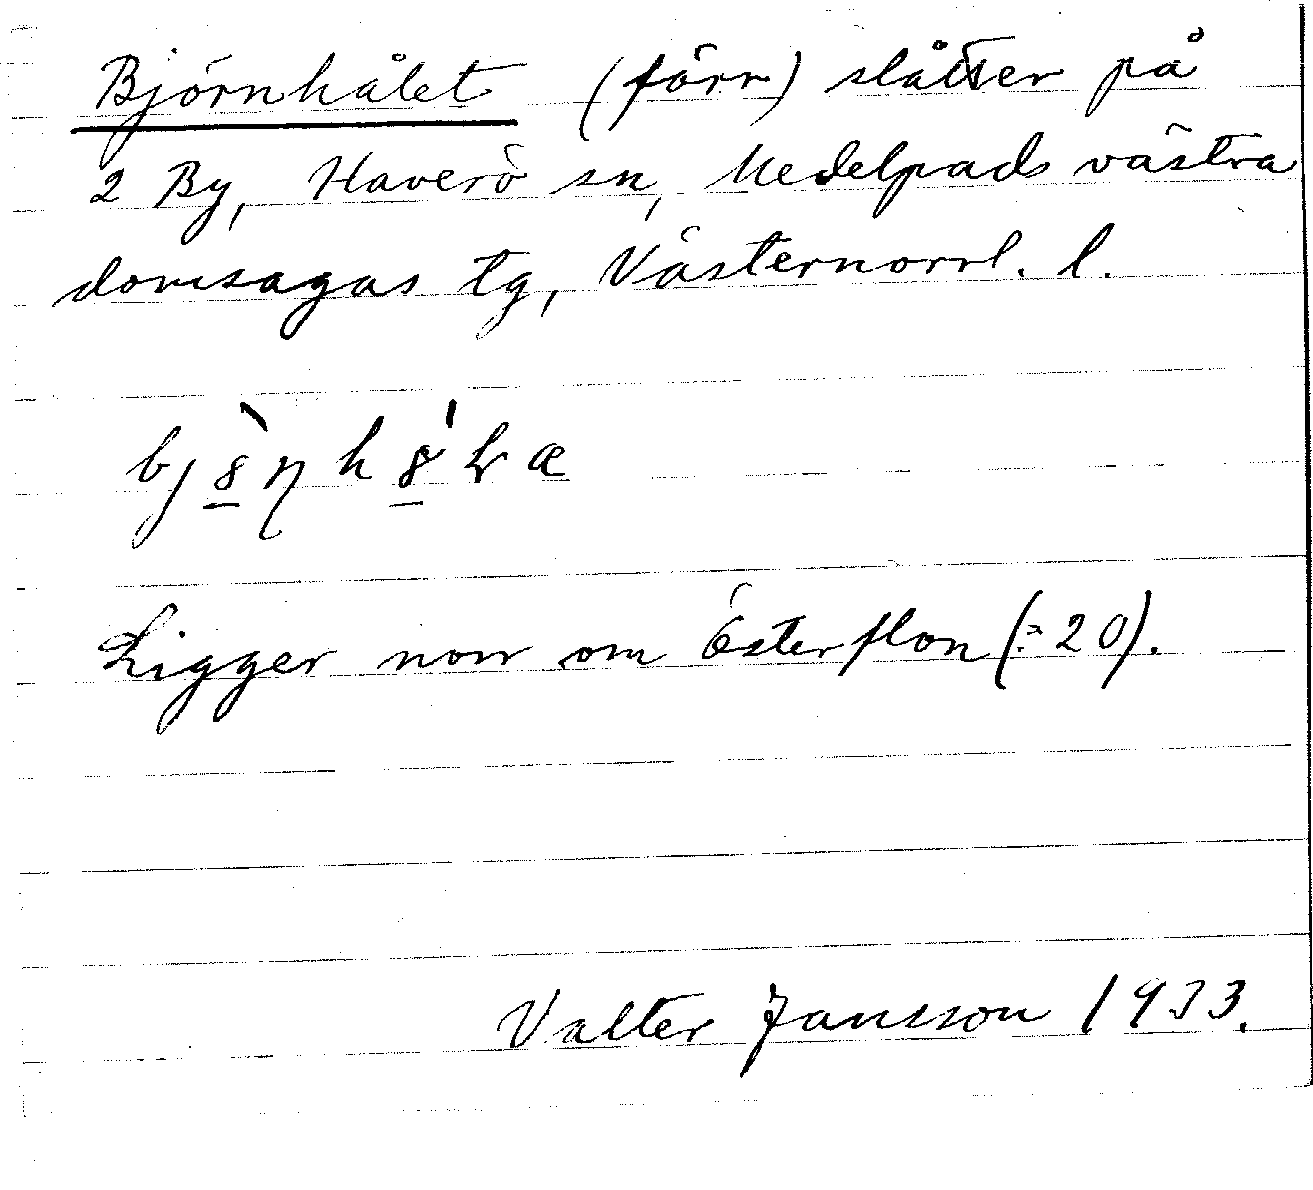 Björnhålet (förr) slåtter på
2 By, Haverö sn, Medelpads västra
domsagas tg, Västernorrl. l.
Ligger norr om Österflon (:20).
Valter Jansson 1933.